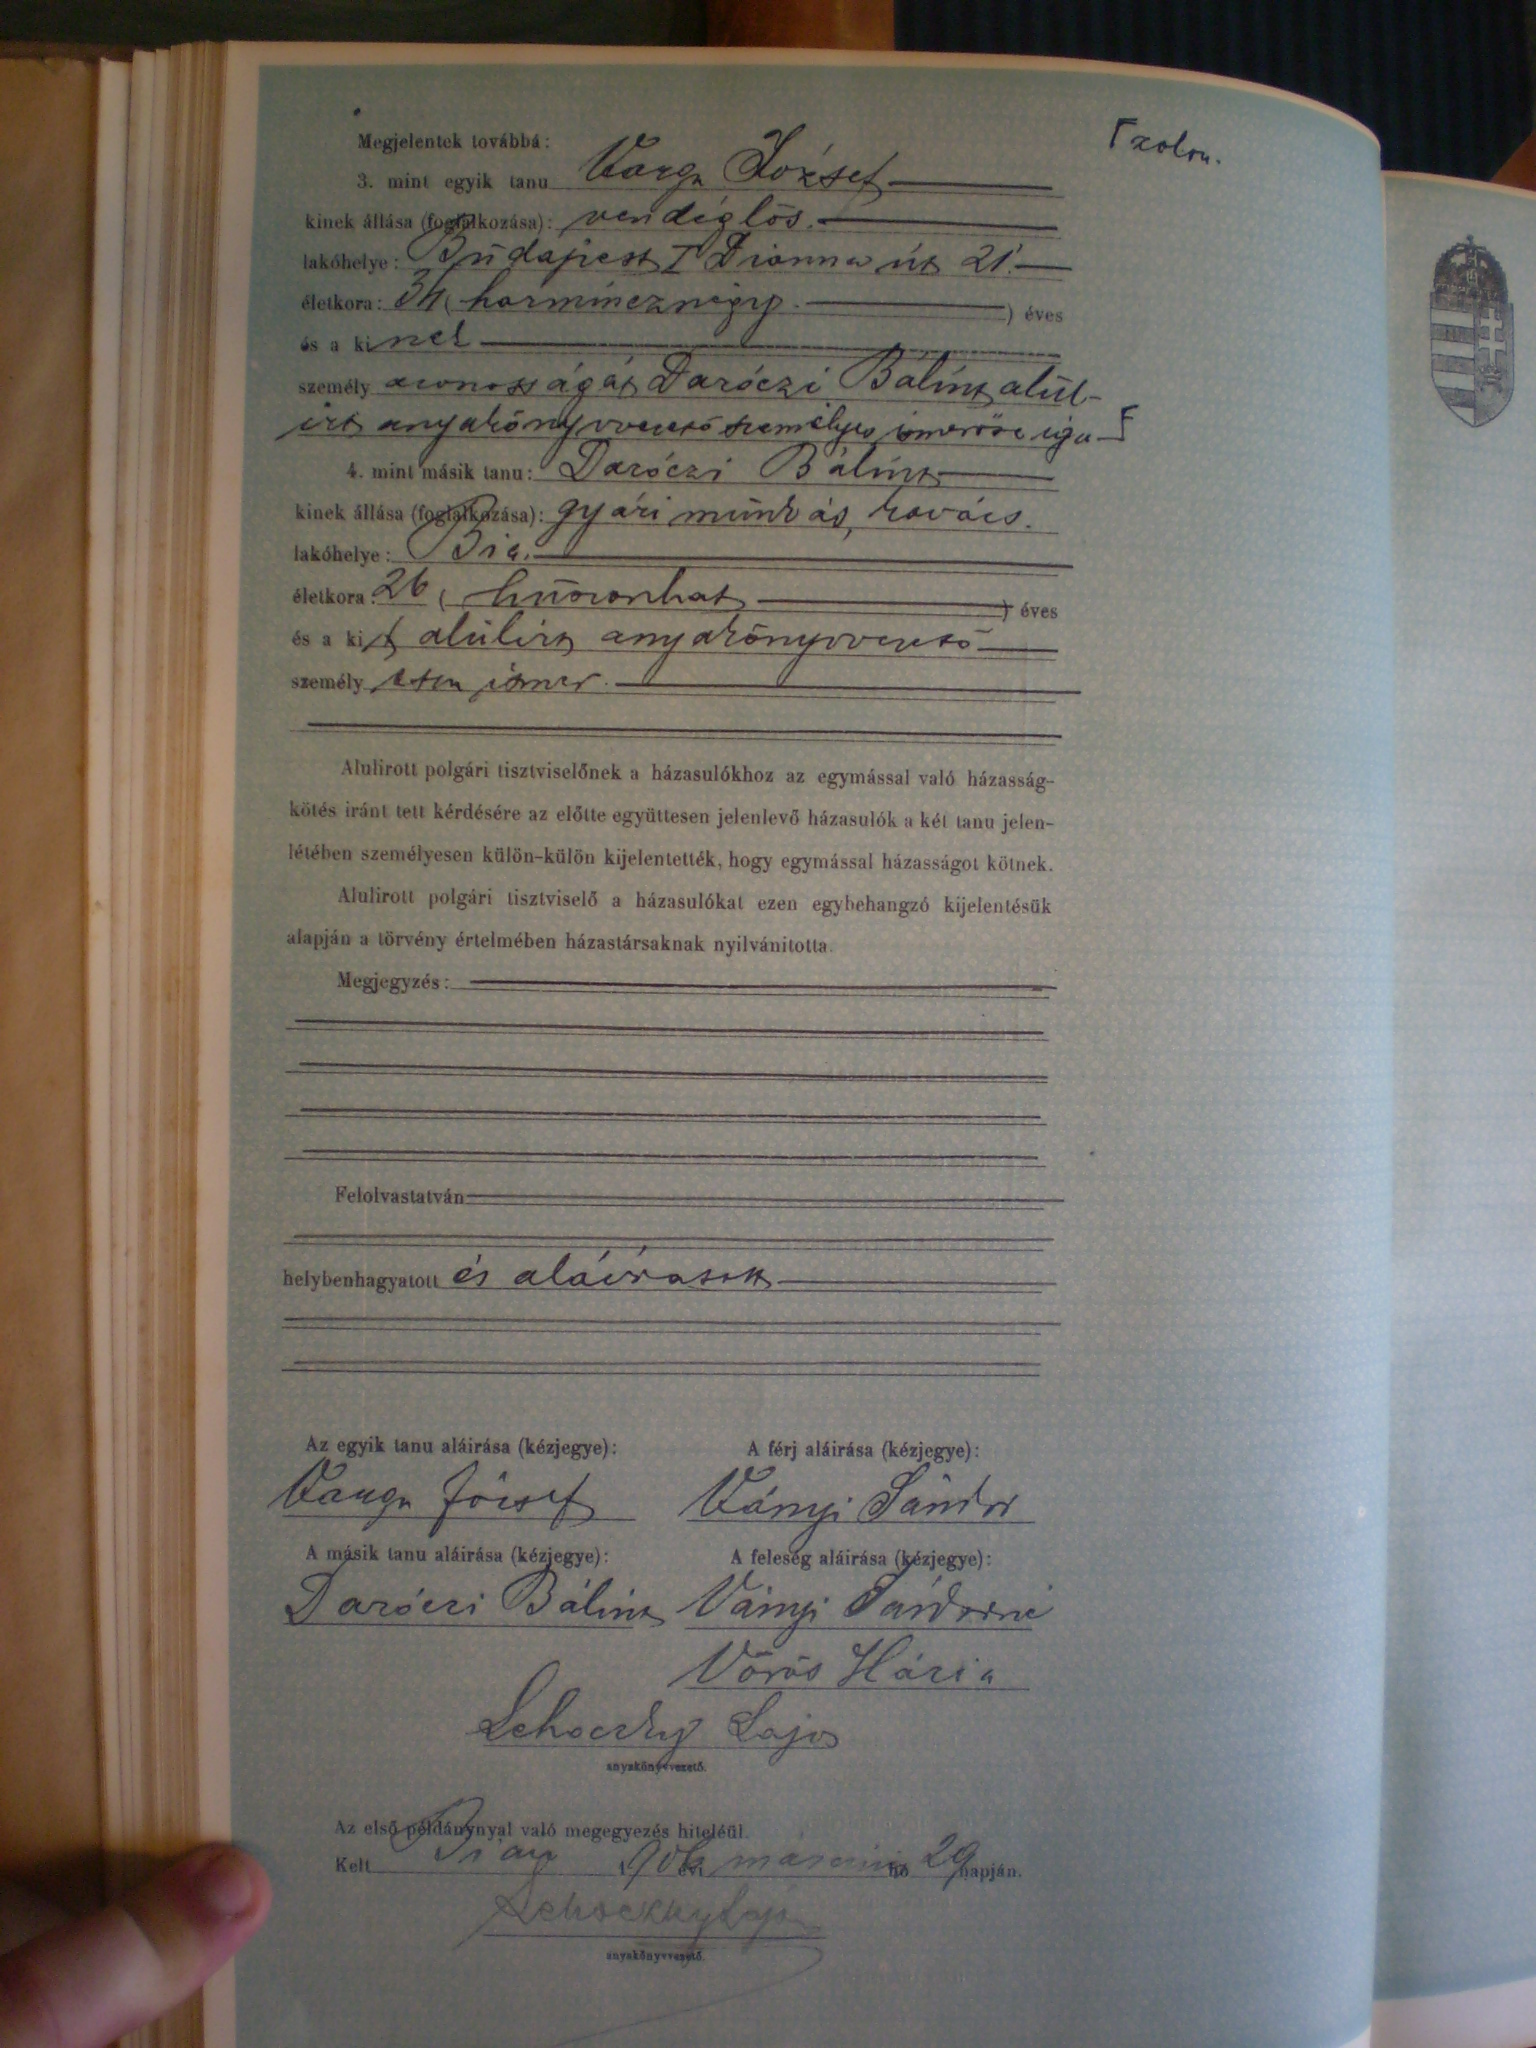 Megjelentek továbbá:
⌈zolja.
3. mint egyik tanu Varga József
kinek állása (foglalkozása): vendéglős.
lakóhelye: Budapest I Dianna út 21.
életkora: 34 (harmincznégy.) éves
és a kinek
személyazonosságát Daróczi Bálint alul-
irt anyakönyvvezető személyes ismerőse iga⌈
4. mint másik tanu: Daróczi Bálint
kinek állása (foglalkozása): gyári munkás, kovács.
lakóhelye: Bia.
életkora: 26 (huszonhat) éves
és a kit alulirt anyakönyvvezető
személyesen ismer.
Alulirott polgári tisztviselőnek a házasulókhoz az egymással való házasság-
kötés iránt tett kérdésére az előtte együttesen jelenlevő házasulók a két tanu jelen-
létében személyesen külön-külön kijelentették, hogy egymással házasságot kötnek.
Alulirott polgári tisztviselő a házasulókat ezen egybehangzó kijelentésük
alapján a törvény értelmében házastársaknak nyilvánitotta.
Megjegyzés:
Felolvastatván
helybenhagyatott és aláíratott
Az egyik tanu aláirása (kézjegye): A férj aláirása (kézjegye):
Varga József Ványi Sándor
A másik tanu aláirása (kézjegye): A feleség aláirása (kézjegye):
Daróczi Bálint Ványi Sándorné
Vörös Mária
Lehoczky Lajos
anyakönyvvezető.
Az első példánynyal való megegyezés hiteléül.
Kelt Bián 190 évi márczius hó 29 napján.
Lehoczky Lajos
anyakönyvvezető.